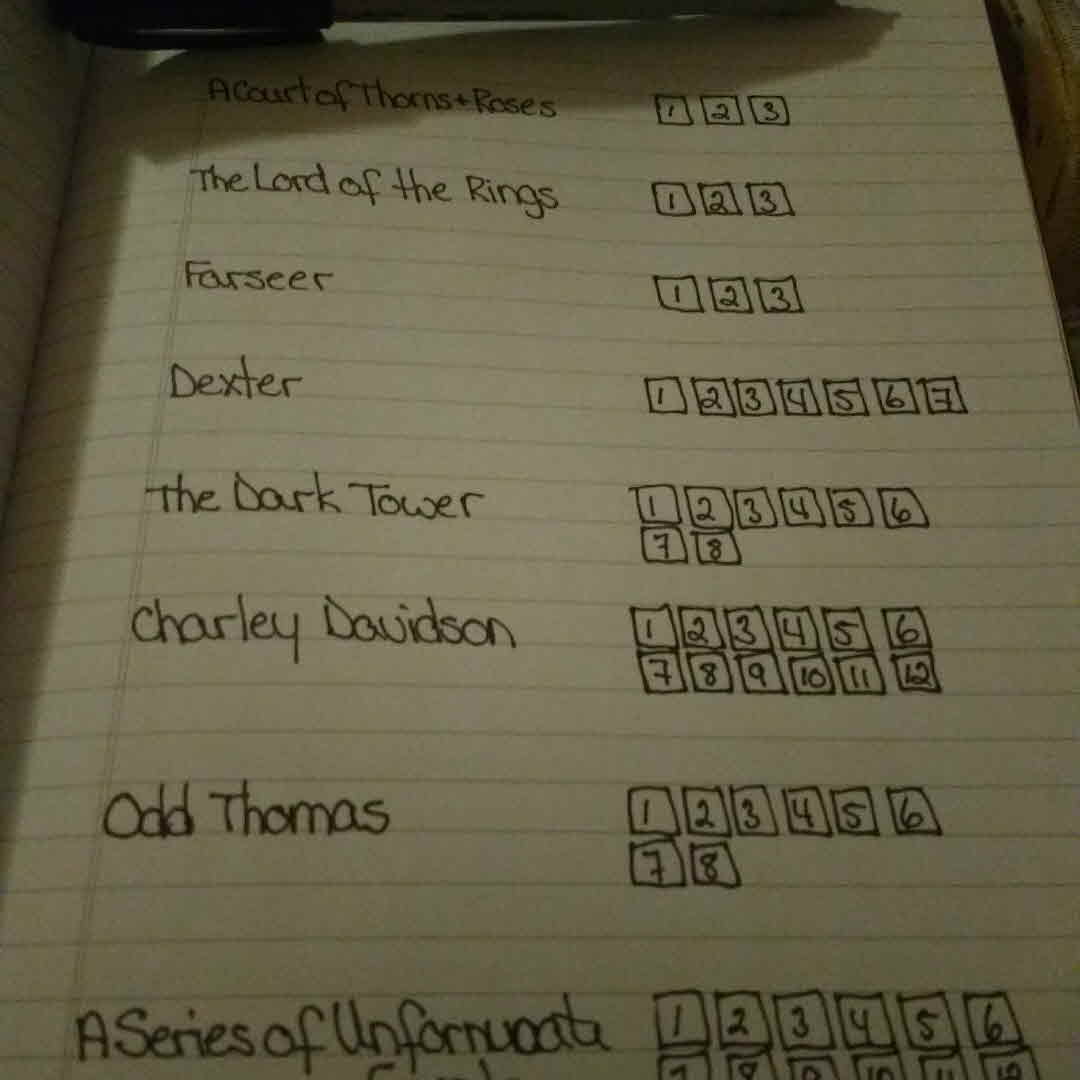 A Court of Thorns + Roses 1 2 3
The Lord of the Rings 1 2 3
Farseer 1 2 3
Dexter 1 2 3 4 5 6 7
The Dark Tower 1 2 3 4 5 6
7 8
Charley Davidson 1 2 3 4 5 6
7 8 9 10 11 12
Odd Thomas 1 2 3 4 5 6
7 8
A Series of 1 2 3 4 5 6
7 8 9 10 11 12